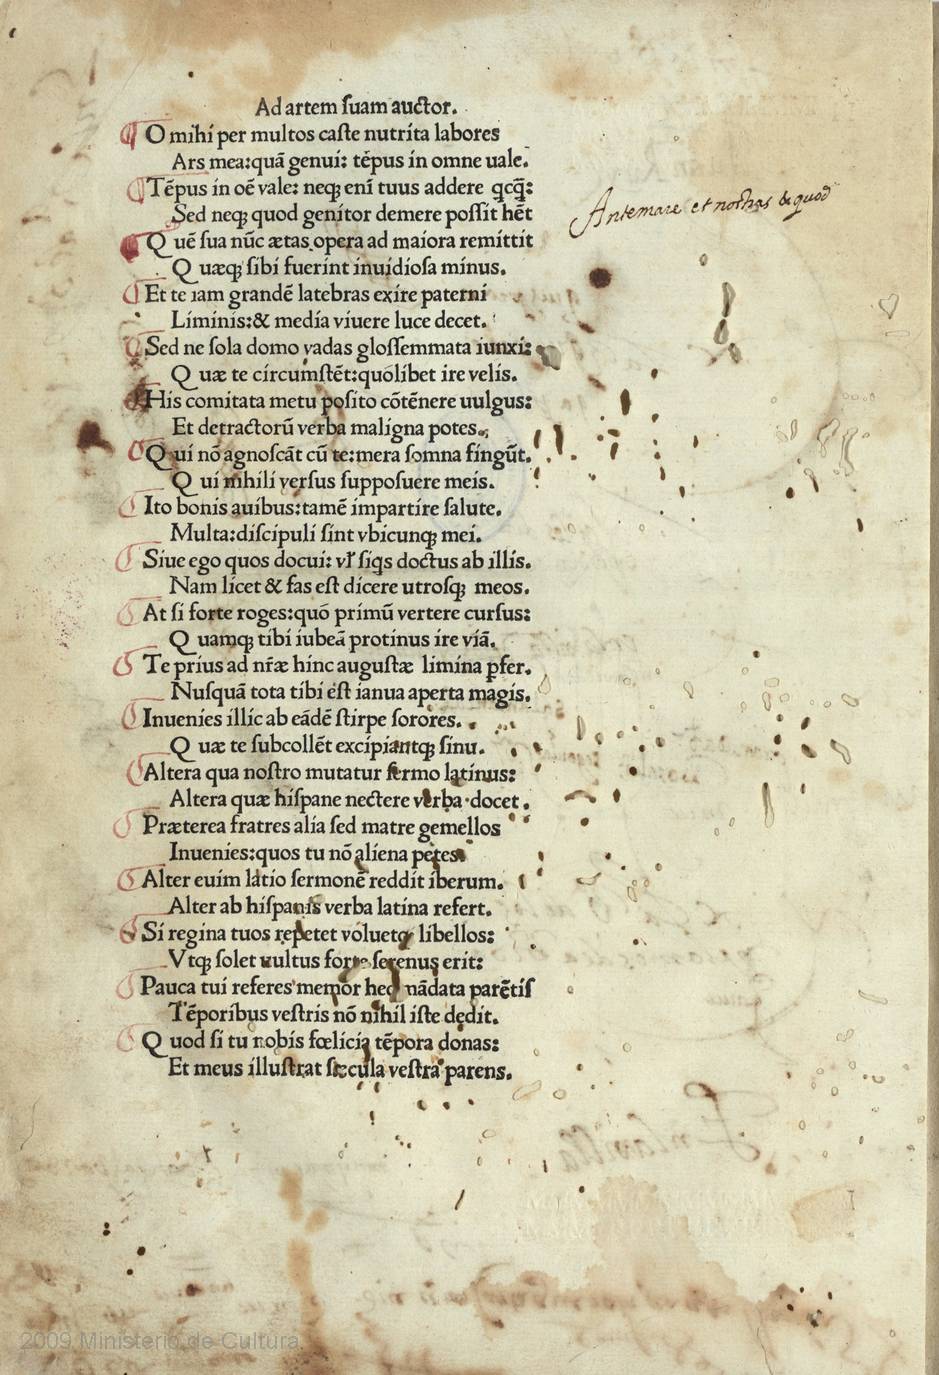 Ad artem ſuam auctor.
O mihi per multos caſte nutrita labores
Ars mea:quã genui: tẽpus in omne uale.
Tẽpus in oẽ vale: neqꝫ eni tuus addere qcq̃:
Sed neqꝫ quod genitor demere poſſit hẽt
Q uẽ ſua nũc ætas opera ad maiora remittit
Q uæqꝫ ſibi fuerint inuidioſa minus.
Et te iam grandẽ latebras exire paterni
Liminis:& media viuere luce decet.
Sed ne ſola domo vadas gloſſemmata iunxi:
Q uæ te circumſtẽt:quolibet ire velis.
His comitata metu poſito cõtẽnere uulgus:
Et detractorũ verba maligna potes.
Q ui nõ agnoſcãt cũ te:mera ſomna fingũt.
Q ui nihili verſus ſuppoſuere meis.
Ito bonis auibus:tamẽ impartire ſalute.
Multa:diſcipuli ſint vbicunqꝫ mei.
Siue ego quos docui: vl' ſiqs doctus ab illis.
Nam licet & fas eſt dicere utroſqꝫ meos.
At ſi forte roges:quõ primũ vertere curſus:
Q uamqꝫ tibi iubeã protinus ire viã.
Te prius ad nr̃æ hinc auguſtæ limina ꝑfer.
Nuſquã tota tibi eſt ianua aperta magis.
Inuenies illic ab eãdẽ ſtirpe ſorores.
Q uæ te ſubcollẽt excipiantqꝫ ſinu.
Altera qua noſtro mutatur ſermo latinus:
Altera quæ hiſpane nectere verba docet.
Præterea fratres alia ſed matre gemellos
Inuenies:quos tu nõ aliena petes.
Alter euim latio ſermonẽ reddit iberum.
Alter ab hiſpanis verba latina refert.
Si regina tuos repetet voluetqꝫ libellos:
Vtqꝫ ſolet uultus forte ſerenus erit:
Pauca tui referes memor hec mãdata parẽtis
Tẽporibus veſtris nõ nihil iſte dedit.
Q uod ſi tu nobis fœlicia tẽpora donas:
Et meus illuſtrat ſæcula veſtra parens.
2009 Ministerio de Cultura